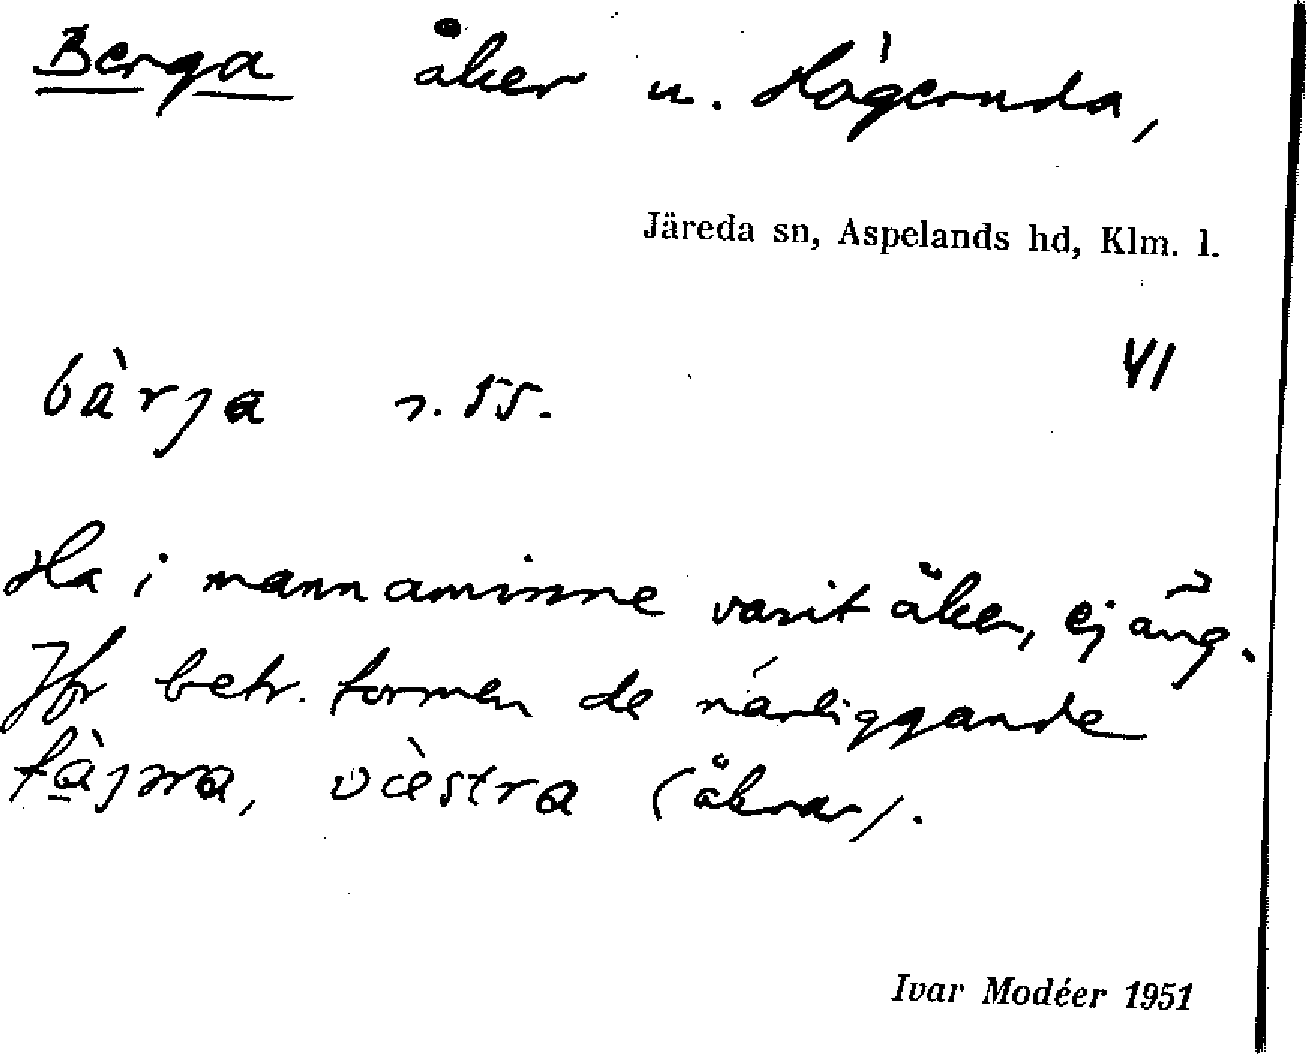 Berga åker u. Högeruda,
Järeda sn, Aspelands hd, Klm. l.
VI
bàrja r. 55.
Ha i mannaminne varit åker, ej äng.
Jfr betr. formen de närliggande
, vèstra (åkrar).
Ivar Modéer 1951